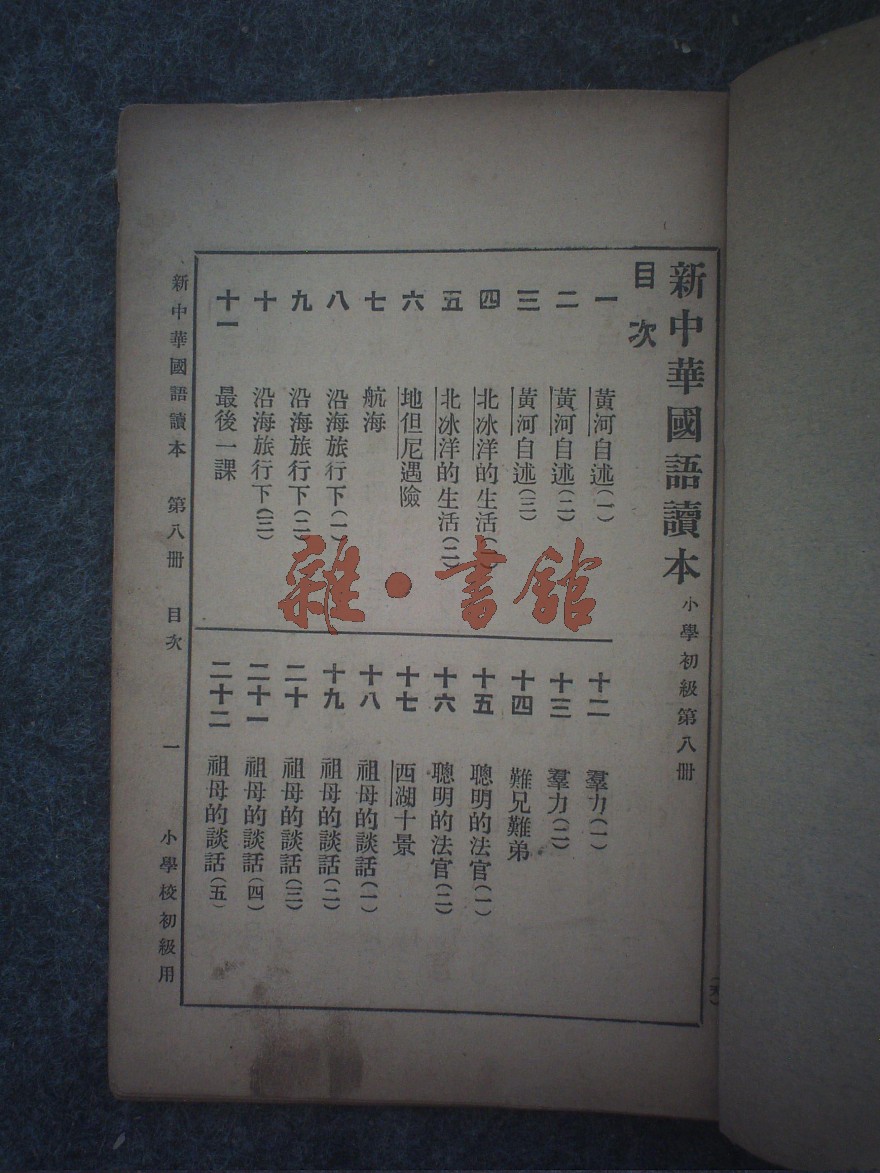 新中華國語讀本 小學初級第八冊
目次
一 黃河自述(一)
二 黃河自述(二)
三 黃河自述(三)
四 北冰洋的生活(一)
五 北冰洋的生活(二)
六 地但尼遇險
七 航海
八 沿海旅行下(一)
九 沿海旅行下(二)
十 沿海旅行下(三)
十一 最後一課
十二 羣力(一)
十三 羣力(二)
十四 難兄難弟
十五 聰明的法官(一)
十六 聰明的法官(二)
十七 西湖十景
十八 祖母的談話(一)
十九 祖母的談話(二)
二十 祖母的談話(三)
二十一 祖母的談話(四)
二十二 祖母的談話(五)
新中華國語讀本 第八冊 目次 一 小學校初級用
雜·書館